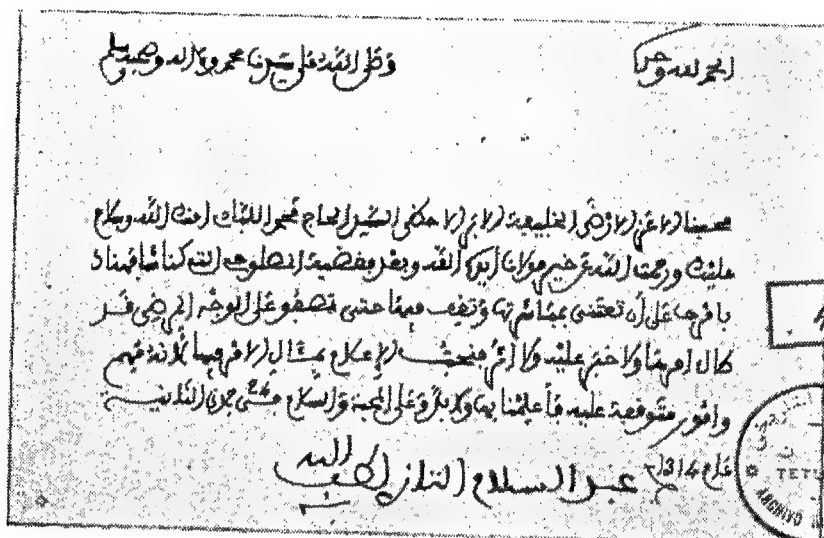 الحمد لله وحده
وصلى الله على سيدنا محمد وءاله وصحبه وسلم
محبنا الاعز الارضى الاحظى السيد الحاج محمد اللبادي امنك الله وسلام
عليك ورحمة الله عن خير مولانا ايده الله وبعد فقضية التي كنا شافهناك
بامرها على أن تعتني بمباشرتها وتقف فيها حتى تصفو على الوجه المرضي قد
طال امرها ولا خبر عليه ولا اثر فنحب الإعلام بمثال الامر فيها لانه مهم
وامور متوقفة عليه فأعلمنا بها ولا بد وعلى المحبة والسلام في 24 جمدى الثانية
عام 1314
عبد السلام التازي لطف الله به
TETU